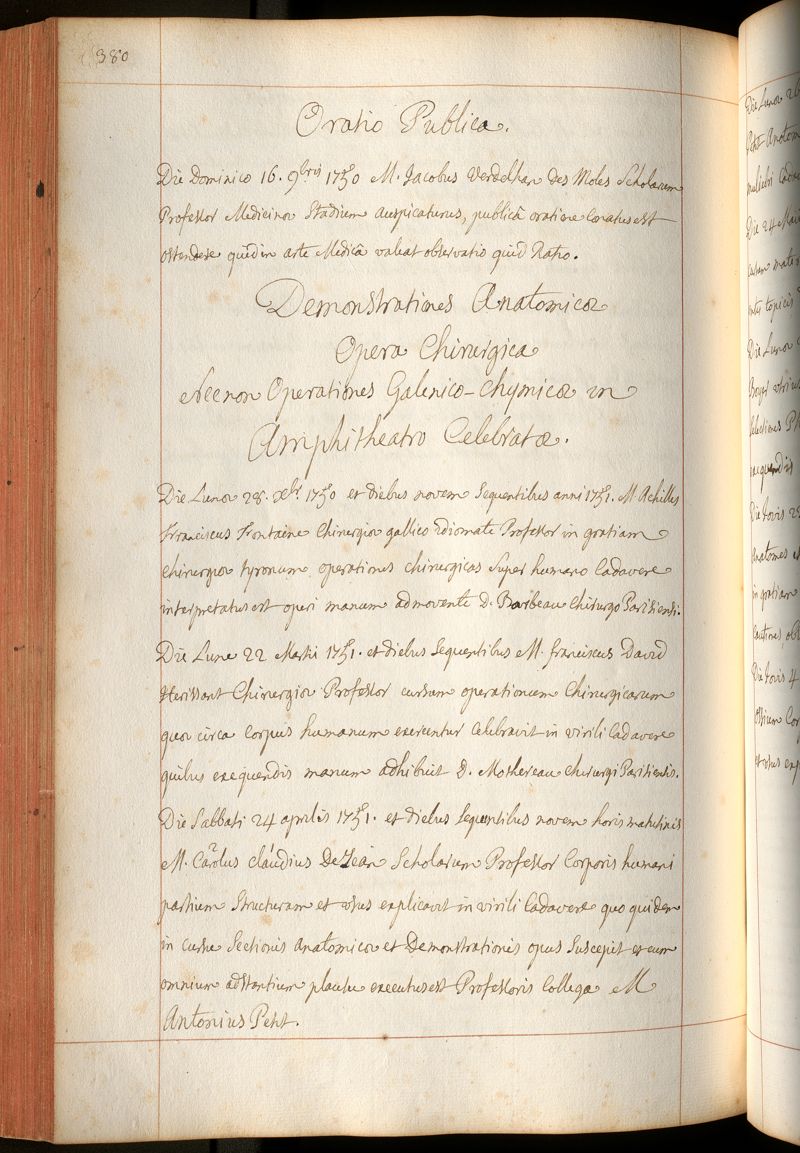 380
Oratio Publica.
Die Dominico 16. 9bris 1750 M. Jacobus Verdelhan Des Moles Scholarum
Professor Medicinæ Stadium auspicaturus, publicâ oratione Conatus est
ostendere quid in arte Medicâ valeat observatio quid Ratio.
Demonstrationes Anatomicæ
Opera Chirurgica
Necnon Operationes Galenico-Chymicæ in
Amphitheatro Celebratæ.
Die Lunæ 28. xbr. 1750 et diebus novem Sequentibus anni 1751. M Achilles
Franciscus Fontaine Chirurgiæ gallico Idiomate Professor in gratiam
Chirurgiæ tyronum operationes chirurgicas Super humano Cadavere
interpretatus est operi manum admovente D. Barbeau Chirurgo Parisiensi.
Die Lune 22 Martii 1751. et diebus Sequentibus M. franciscus David
Herissant Chirurgiæ Professor cursum operationum Chirurgicarum
quæ circa Corpus humanum exercentur Celebravit in virili Cadavere
quibus exequendis manum adhibuit D. Mothereau Chirurgi Parisiensis.
Die Sabbati 24 aprilis 1751. et diebus sequentibus novem horis matutinis
M. Carolus claudius De Jean Scholarum Professor Corporis humani
partium Structuram et usus explicavit in virili Cadavere quo quidem
in cursu Sectionis anatomicæ et Demonstrationis opus Suscepit et cum
omnium adstantium plausu executus est Professoris Collega M
Antonius Petit.
Die Lunæ 26
Petit Anatom
muliebri Cadav
Die 24 Maii
cursum mate
inter topicis
Die Lunæ
Boyer utrius
Selectiones Ph
exequendis
Die Jovis 22
anatomes e
in gratiam
Die Jovis 4
ossium Cor
et usus exp